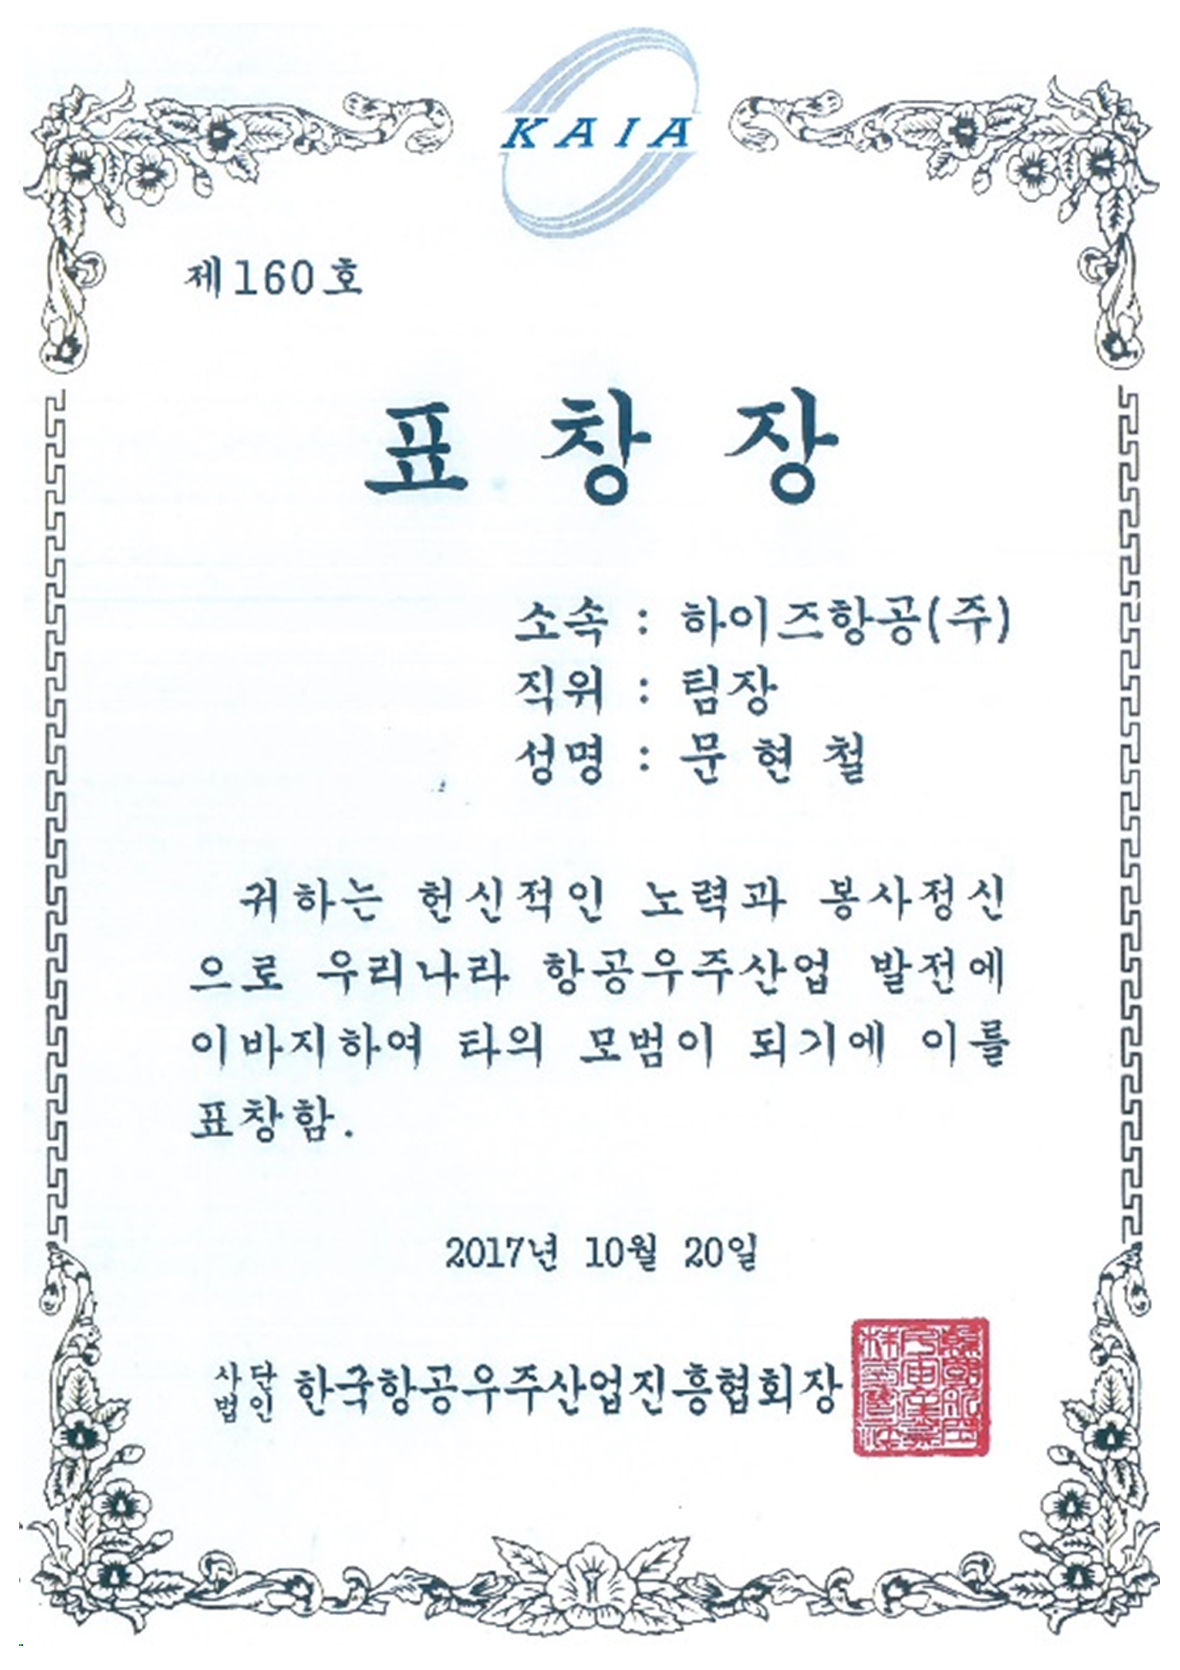 KAIA
제160호
표 창 장
소속 : 하이즈항공(주)
직위 : 팀장
성명 : 문 현 철
귀하는 헌신적인 노력과 봉사정신
으로 우리나라 항공우주산업 발전에
이바지하여 타의 모범이 되기에 이를
표창함.
2017년 10월 20일
사단법인 한국항공우주산업진흥협회장